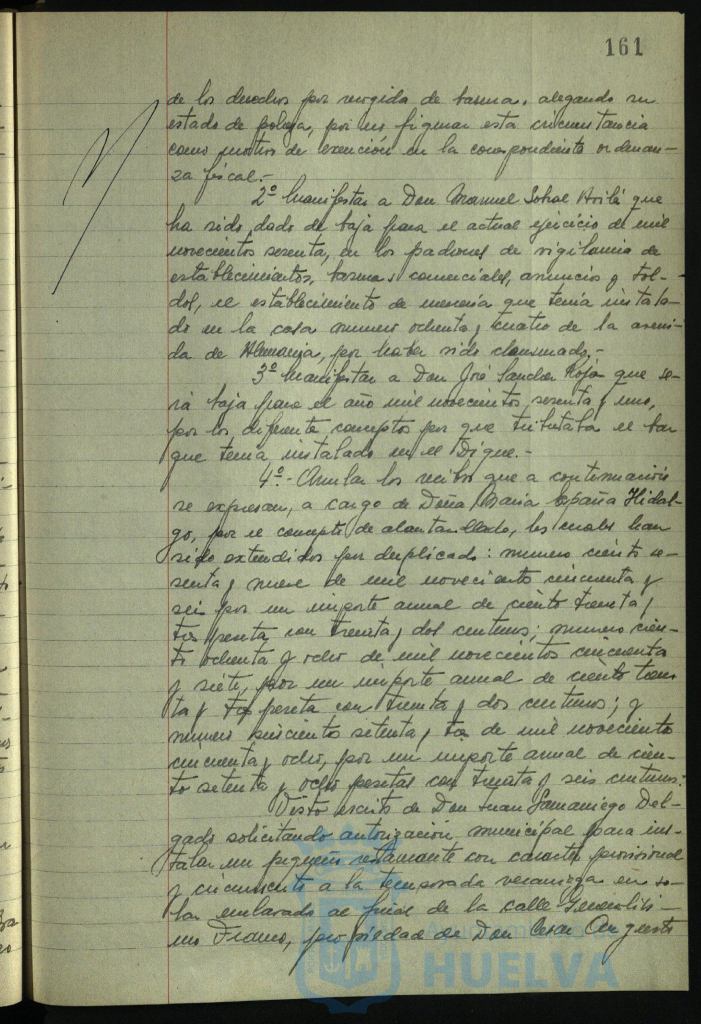 161
de los derechos por recogida de basura, alegando su
estado de pobreza, por no figurar esta circunstancia
como motivo de exención en la correspondiente ordenan-
za fiscal.-
2º Manifestar a Don Manuel Sobral Avilá que
ha sido dado de baja para el actual ejercicio de mil
novecientos sesenta, en los padrones de vigilancia de
establecimientos, basuras comerciales, anuncios y tol-
dos, el establecimiento de mercería que tenía instala-
do en la casa numero ochenta y cuatro de la aveni-
da de Alemania, por haber sido clausurado.-
3º Manifestar a Don José Sanchez Rojas que se-
rá baja para el año mil novecientos sesenta y uno,
por los diferentes conceptos por que tributaba el bar
que tenía instalado en el Dique.-
4º.- Anular los recibos que a continuación
se expresan, a cargo de Doña Maria España Hidal-
go, por el concepto de alcantarillado, los cuales han
sido extendidos por duplicado: numero ciento se-
senta y nueve de mil novecientos cincuenta y
seis por un importe anual de ciento treinta y
tres pesetas con treinta y dos centimos; numero cien-
to ochenta y ocho de mil novecientos cincuenta
y siete, por un importe anual de ciento trein-
ta y tres pesetas con treinta y dos centimos; y
numero seiscientos setenta y tres de mil novecientos
cincuenta y ocho, por un importe anual de cien-
to setenta y ocho pesetas con treinta y seis centimos.
Visto escrito de Don Juan Samaniego Del-
gado solicitando autorización municipal para ins-
talar un pequeño restaurante con caracter provisional
y circunscrito a la temporada veraniega en so-
lar enclavado al final de la calle Generalísi-
mo Franco, propiedad de Don Cesar Augusto
HUELVA